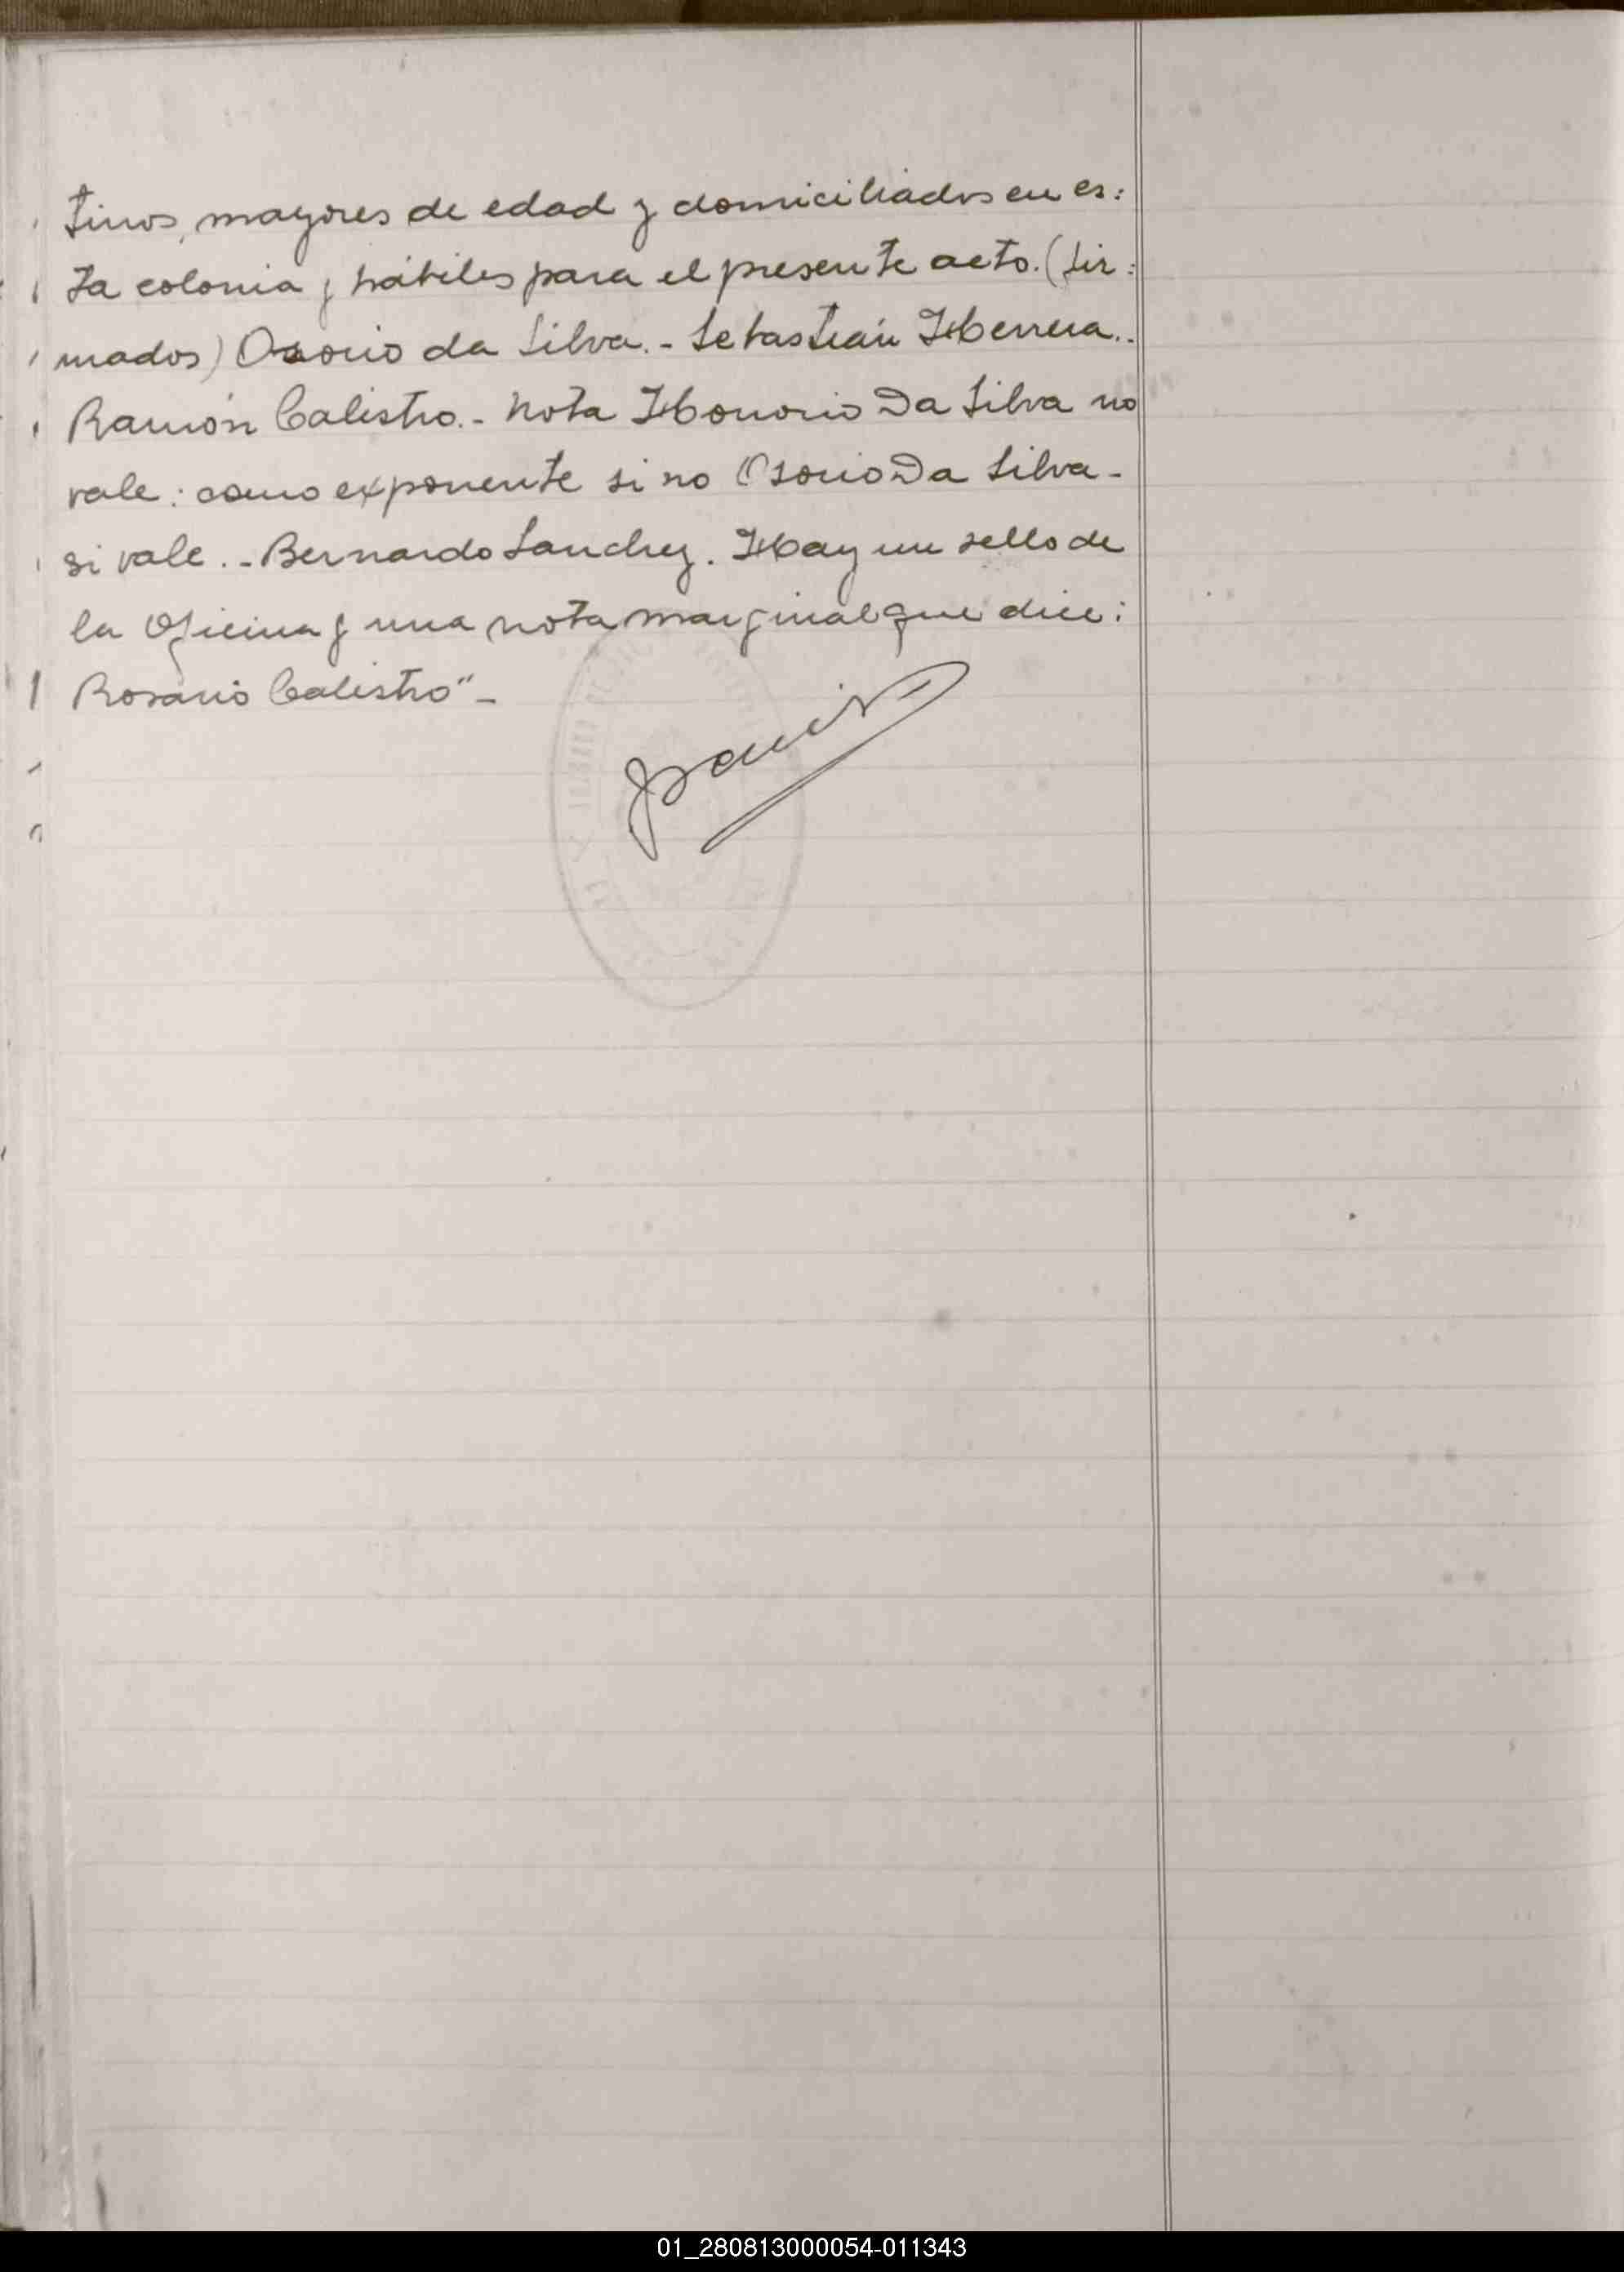 tinos, mayores de edad y domiciliados en es:
ta colonia y hábiles para el presente acto. (Fir:
mados) Osorio da Silva.- Sebastián Herrera.-
Ramón Calistro.- Nota Honorio Da Silva no
vale: como exponente si no Osorio Da Silva -
si vale.- Bernardo Sanchez. Hay un sello de
la Oficina y una nota marginal que dice:
Rosario Calistro" -
01_280813000054-011343